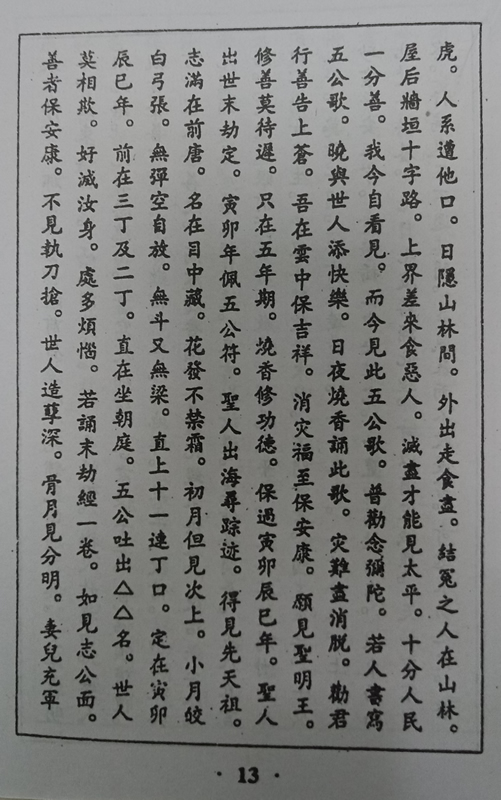 虎。人系遭他口。日隱山林間。外出走食盡。結冤之人在山林。
屋后牆垣十字路。上界差來食惡人。滅盡才能見太平。十分人民
一分善。我今自看見。而今見此五公歌。普勸念彌陀。若人書寫
五公歌。曉與世人添快樂。日夜燒香誦此歌。灾難盡消脱。勸君
行善告上蒼。吾在雲中保吉祥。消灾福至保安康。願見聖明王。
修善莫待遲。只在五年期。燒香修功德。保過寅卯辰巳年。聖人
出世末劫定。寅卯年佩五公符。聖人出海尋踪迹。得見先天祖。
志滿在前唐。名在目中藏。花發不禁霜。初月但見次上。小月皎
白弓張。無彈空自放。無斗又無梁。直上十一連丁口。定在寅卯
辰巳年。前在三丁及二丁。直在坐朝庭。五公吐出△△名。世人
莫相欺。好滅汝身。處多煩惱。若誦末劫經一卷。如見志公面。
善者保安康。不見執刀搶。世人造孽深。骨月見分明。妻兒充軍
· 13 ·